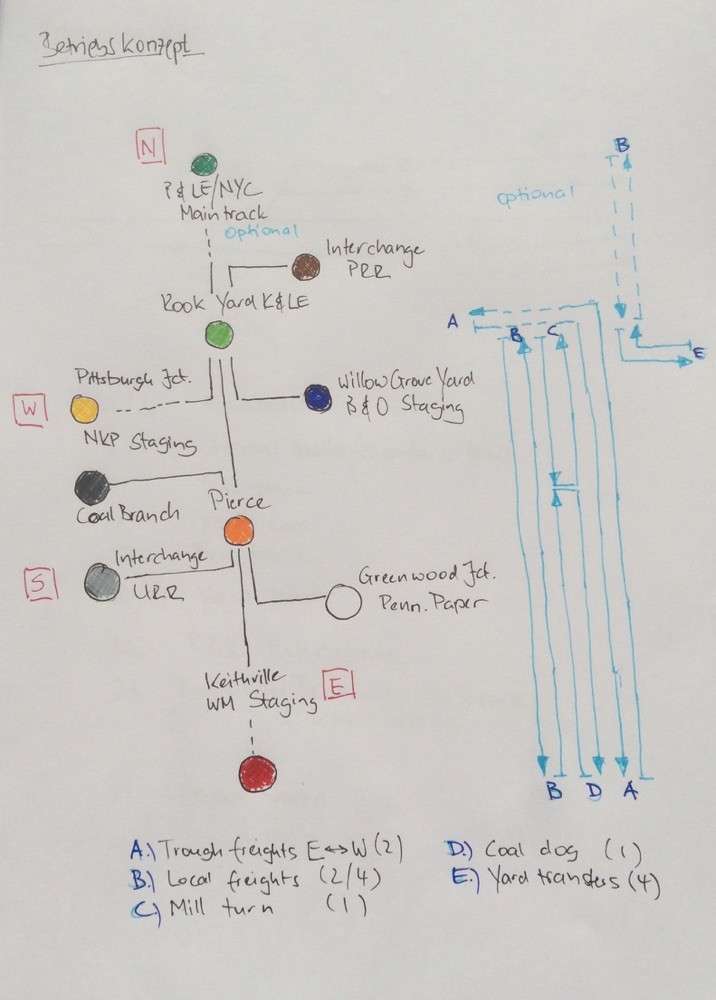 Betriebskonzept
N
P & LE/NYC
Maintrack
optional
Interchange
PRR
Rook Yard K&LE
Pittsburgh Jct.
W
NKP Staging
Willow Grove Yard
B & O Staging
Coal Branch
Pierce
S
Interchange
URR
Greenwood Jct.
Penn. Paper
Keithville
WM Staging
E
B
optional
A
B
C
E
B
D
A
A.) Trough freights E↔W (2)
B.) Local freights (2/4)
C.) Mill turn (1)
D.) Coal dog (1)
E.) Yard transfers (4)